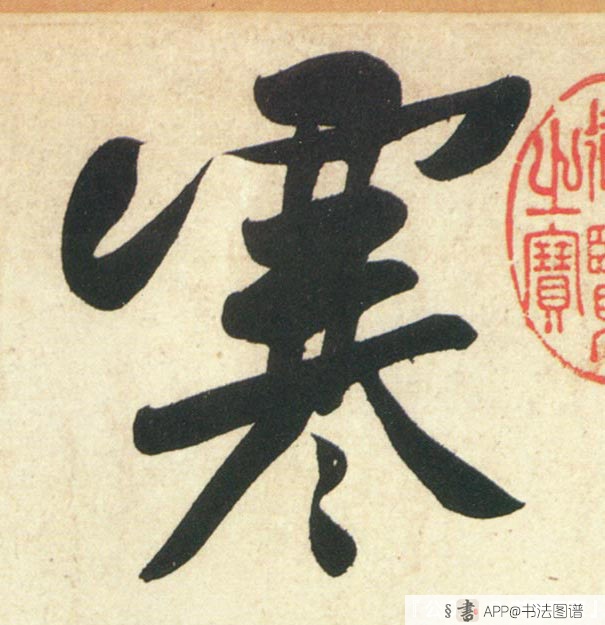 寒
之寶
§書 APP@书法图谱